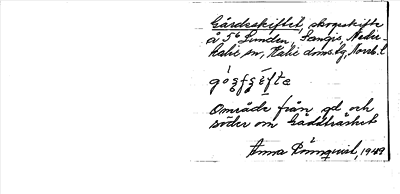 Gårdsskiftet, skogsskifte
å 5⁶ Lunden, Sangis, Neder-
kalix sn, Kalix doms.tg, Norrb. l
Område från gd och
söder om Gäddträsket
Anna Rönnqvist, 1949